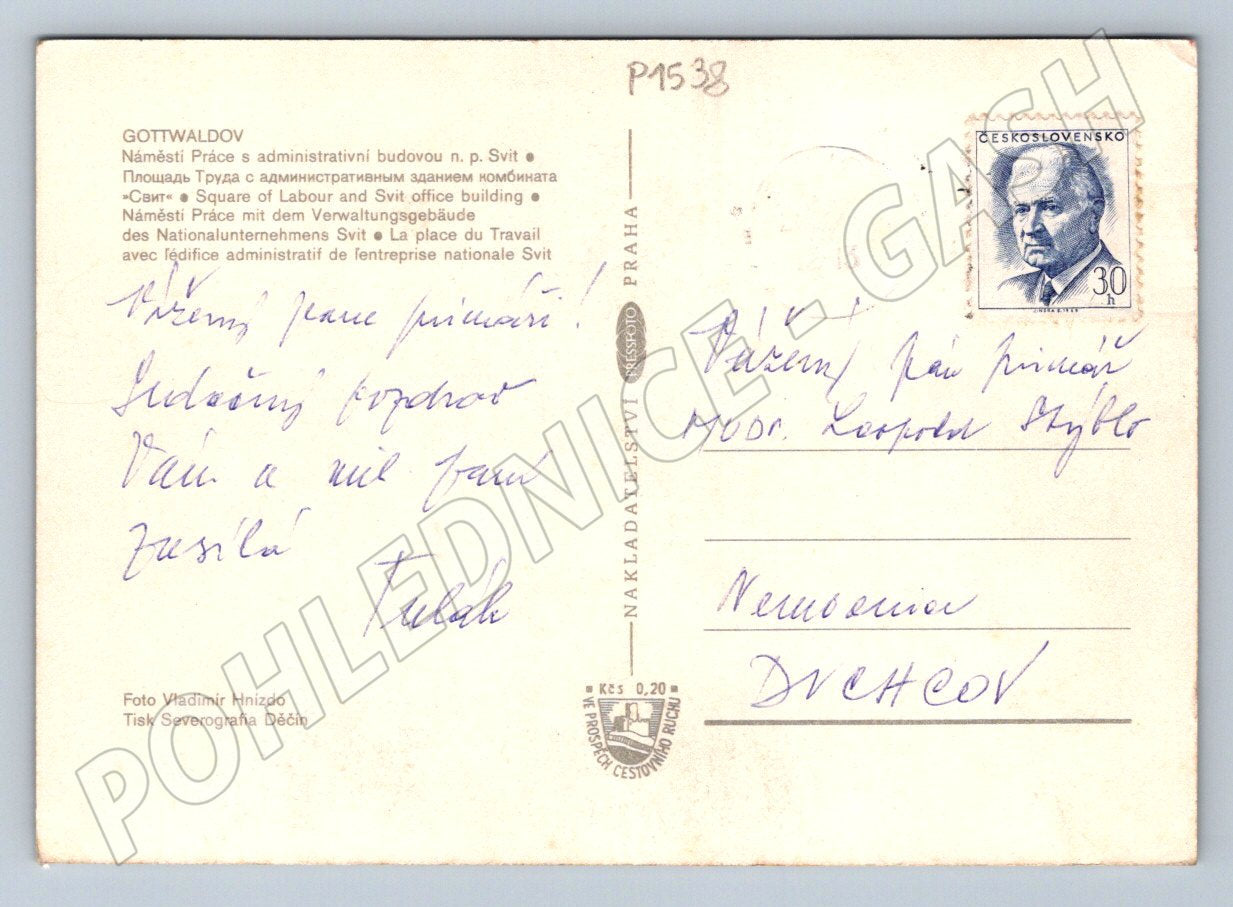 P1538
GOTTWALDOV
Náměstí Práce s administrativní budovou n. p. Svit ●
Площадь Труда с административным зданием комбината
»Свит« ● Square of Labour and Svit office building ●
Náměstí Práce mit dem Verwaltungsgebäude
des Nationalunternehmens Svit ● La place du Travail
avec l'édifice administratif de l'entreprise nationale Svit
Vážený pane primáři!
Srdečný pozdrav
Vám a
zasílá
Foto Vladimír Hnízdo
Tisk Severografia Děčín
NAKLADATELSTVÍ PRESSFOTO PRAHA
Kčs 0,20
VE PROSPĚCH CESTOVNÍHO RUCHU
ČESKOSLOVENSKO
30
h
Vážený pán primář
MUDr. Leopold Stýblo
Nemocnice
DUCHCOV
POHLEDNICE - GASH